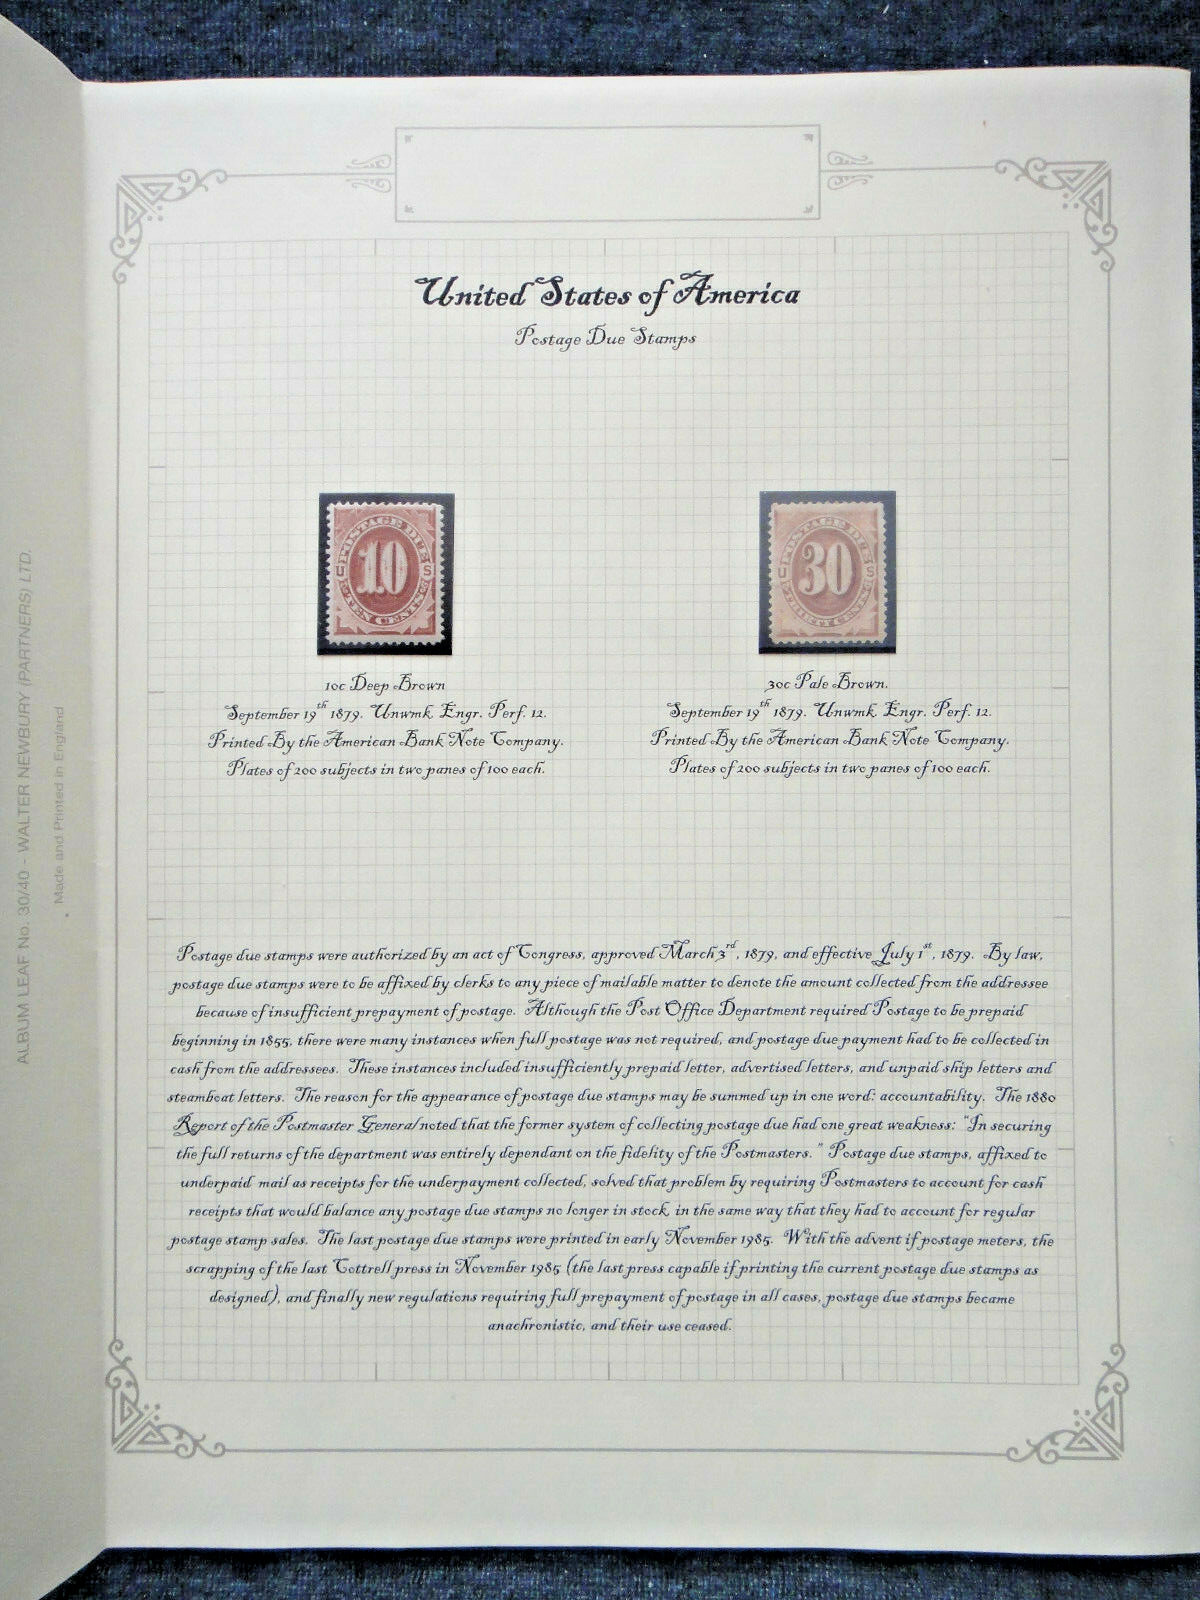 United States of America
Postage Due Stamps
POSTAGE DUE
U 10 S
TEN CENTS
POSTAGE DUE
U 30 S
THIRTY CENTS
10c Deep Brown
September 19th 1879. Unwmk. Engr. Perf. 12.
Printed By the American Bank Note Company.
Plates of 200 subjects in two panes of 100 each.
30c Pale Brown.
September 19th 1879. Unwmk. Engr. Perf. 12.
Printed By the American Bank Note Company.
Plates of 200 subjects in two panes of 100 each.
Postage due stamps were authorized by an act of Congress, approved March 3rd, 1879, and effective July 1st, 1879. By law,
postage due stamps were to be affixed by clerks to any piece of mailable matter to denote the amount collected from the addressee
because of insufficient prepayment of postage. Although the Post Office Department required Postage to be prepaid
beginning in 1855, there were many instances when full postage was not required, and postage due payment had to be collected in
cash from the addressees. These instances included insufficiently prepaid letter, advertised letters, and unpaid ship letters and
steamboat letters. The reason for the appearance of postage due stamps may be summed up in one word: accountability. The 1880
Report of the Postmaster General noted that the former system of collecting postage due had one great weakness: "In securing
the full returns of the department was entirely dependant on the fidelity of the Postmasters." Postage due stamps, affixed to
underpaid mail as receipts for the underpayment collected, solved that problem by requiring Postmasters to account for cash
receipts that would balance any postage due stamps no longer in stock, in the same way that they had to account for regular
postage stamp sales. The last postage due stamps were printed in early November 1985. With the advent if postage meters, the
scrapping of the last Cottrell press in November 1985 (the last press capable if printing the current postage due stamps as
designed), and finally new regulations requiring full prepayment of postage in all cases, postage due stamps became
anachronistic, and their use ceased.
ALBUM LEAF No. 30/40 - WALTER NEWBURY (PARTNERS) LTD.
Made and Printed in England